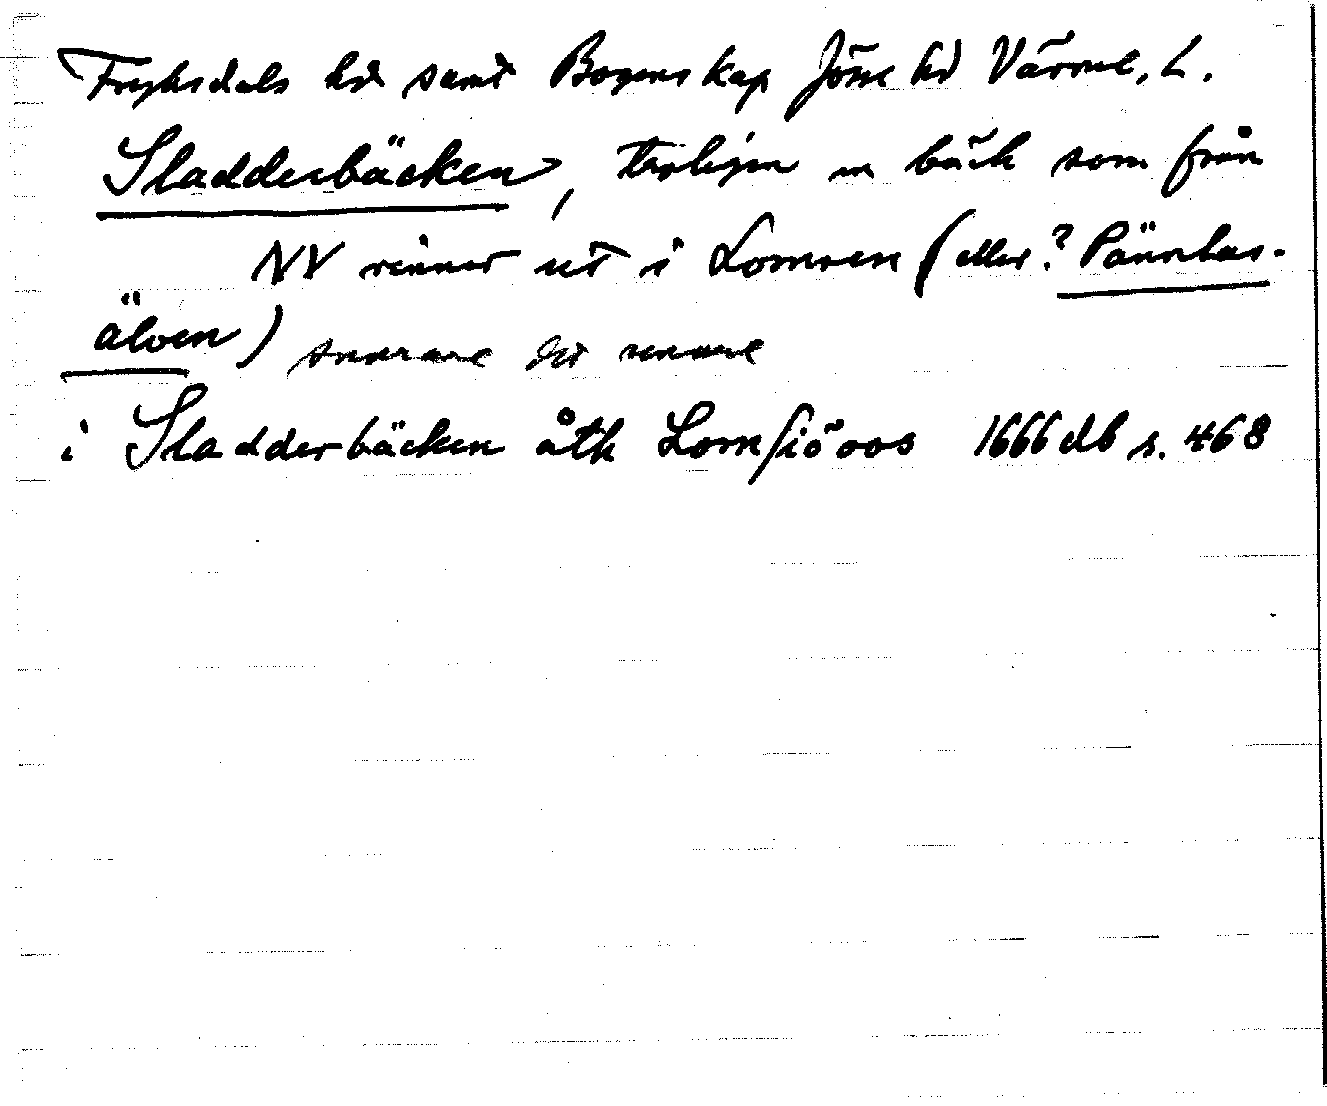 Fryksdals hd samt Bogens kap Jösse hd Värml. L.
Sladderbäcken, troligen en bäck som från
NV rinner ut i Lomsen (eller? Pännbas-
älven) snarare det senare
i Sladderbäcken åth Lomsiöoos 1666 db s. 468